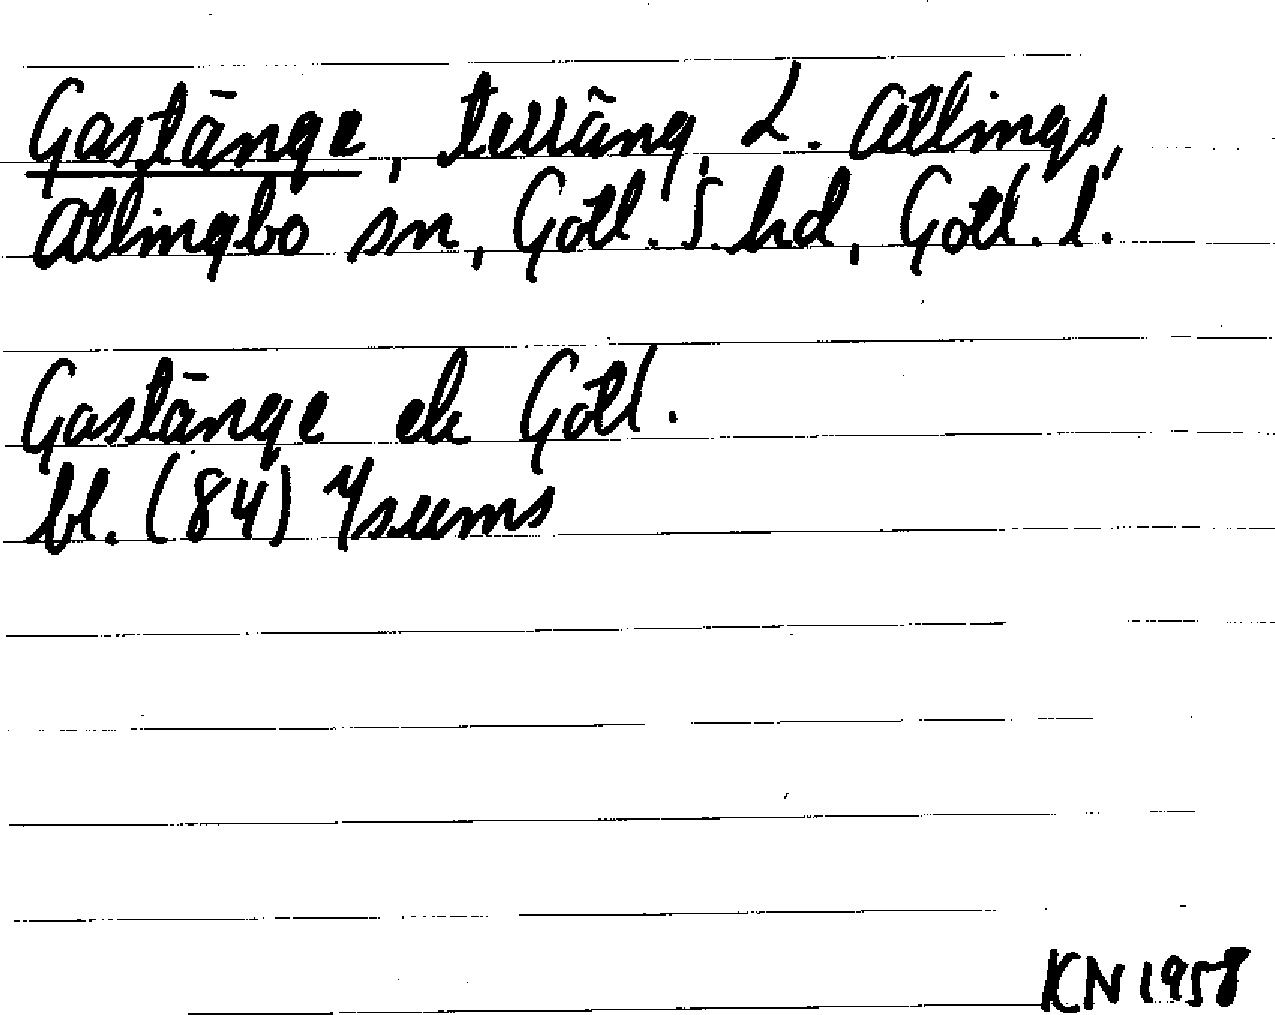 Gastänge, terräng, L. Atlings,
Atlingbo sn, Gotl. S. hd, Gotl. l.
Gastänge ek Gotl.
bl. (84) Ysums
KN 1958